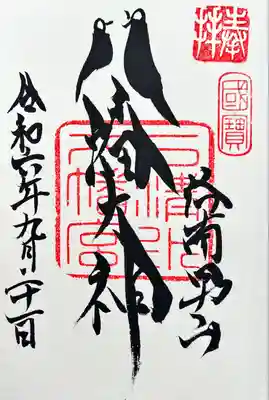 奉拝
國寶
洛南男山
八幡大神
石清水
八幡宮
令和六年九月二十一日